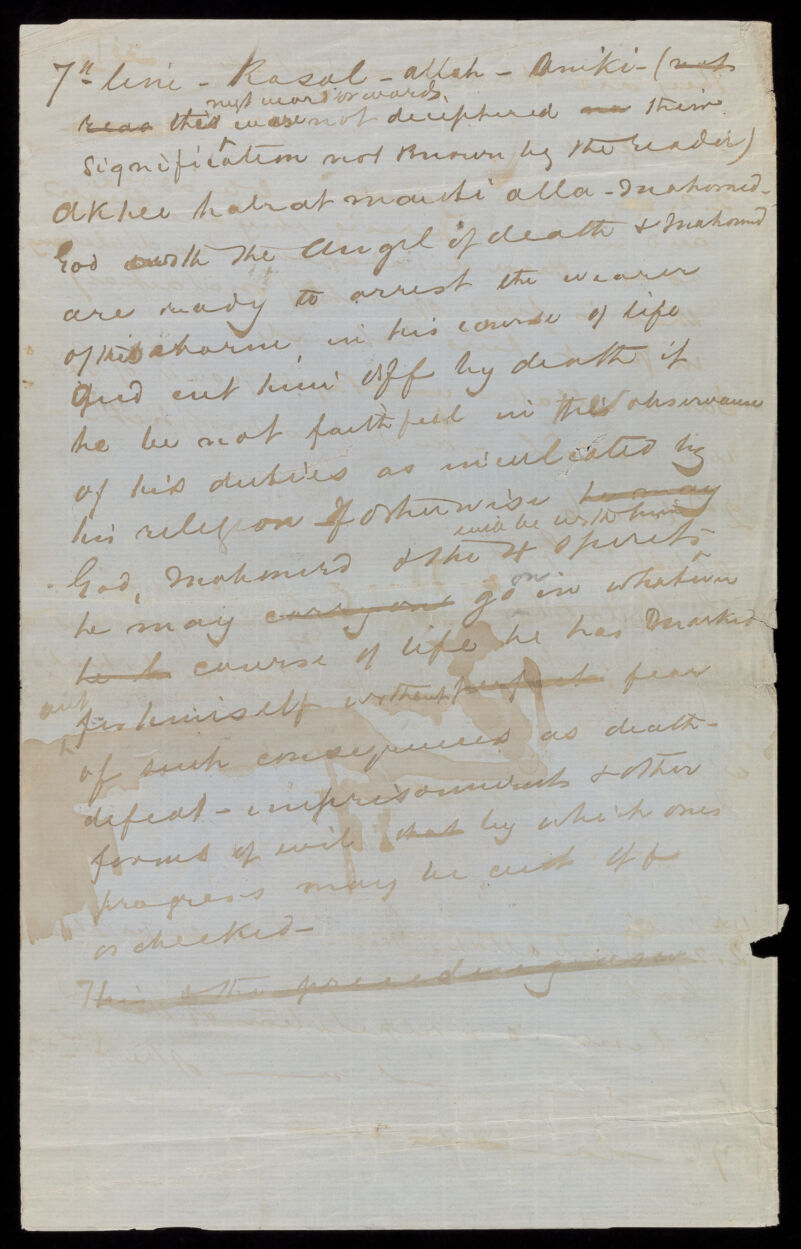 7th line - Rasol - allah - Aniki - (not
next word or words
read this were not deciphered their
signification not known by the reader)
akhee halrat mauti alla - Mahomed -
God with the Angel of death & Mahomd
are ready to arrest the wearer
of this charm in his course of life
and cut him off by death if
he be not faithful in the observance
of his duties as inculcated by
his religion If otherwise he may
will be with him
God, Mahomed & the 4 spirits
he may carry on go on in whatever
he h course of life he has marked
out
for himself without perfect fear
of such consequences as death -
defeat - imprisonment & other
forms of evil that by which ones
progress may be cut off
or checked -
This & the preceding